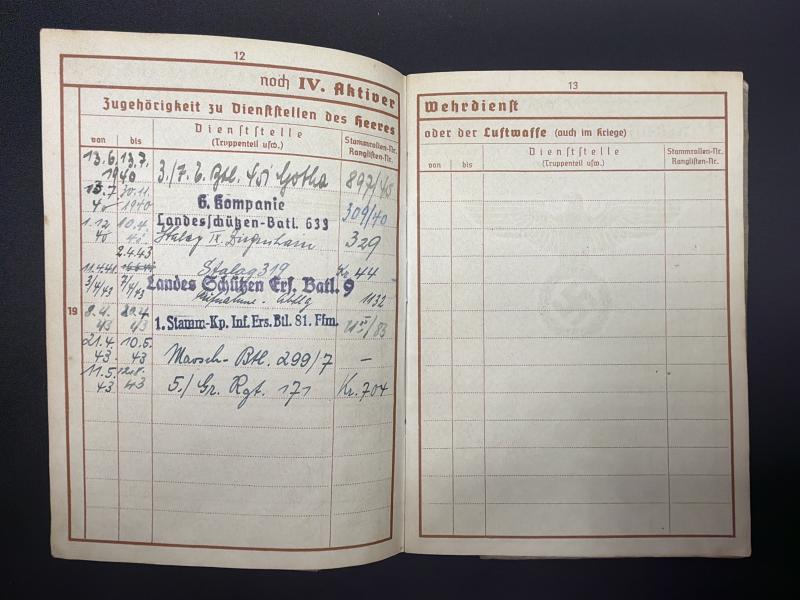 12
noch IV. Aktiver
Zugehörigkeit zu Dienststellen des Heeres
von bis Dienststelle (Truppenteil usw.) Stammrollen-Nr. Ranglisten-Nr.
13.6. 13.7.
1940 3./ Btl. Gotha 897/45
13.7. 30.11. 6. Kompanie
40 1940 Landesschützen-Batl. 633 309/40
1.12. 10.4.
40 Stalag IX 329
2.4.43
11.4.41 Stalag 319 44
3/4/43 7/4/43 Landes Schützen Ers. Batl. 9
1132
19 8.4. 20.4.
43 43 1. Stamm-Kp. Inf. Ers. Btl. 81. Ffm. /83
21.4. 10.5.
43. 43 Marsch-Btl. 299/7 –
11.5.
43 43 5./Gr. Rgt. 171 Kr. 704
13
Wehrdienst
oder der Luftwaffe (auch im Kriege)
von bis Dienststelle (Truppenteil usw.) Stammrollen-Nr. Ranglisten-Nr.